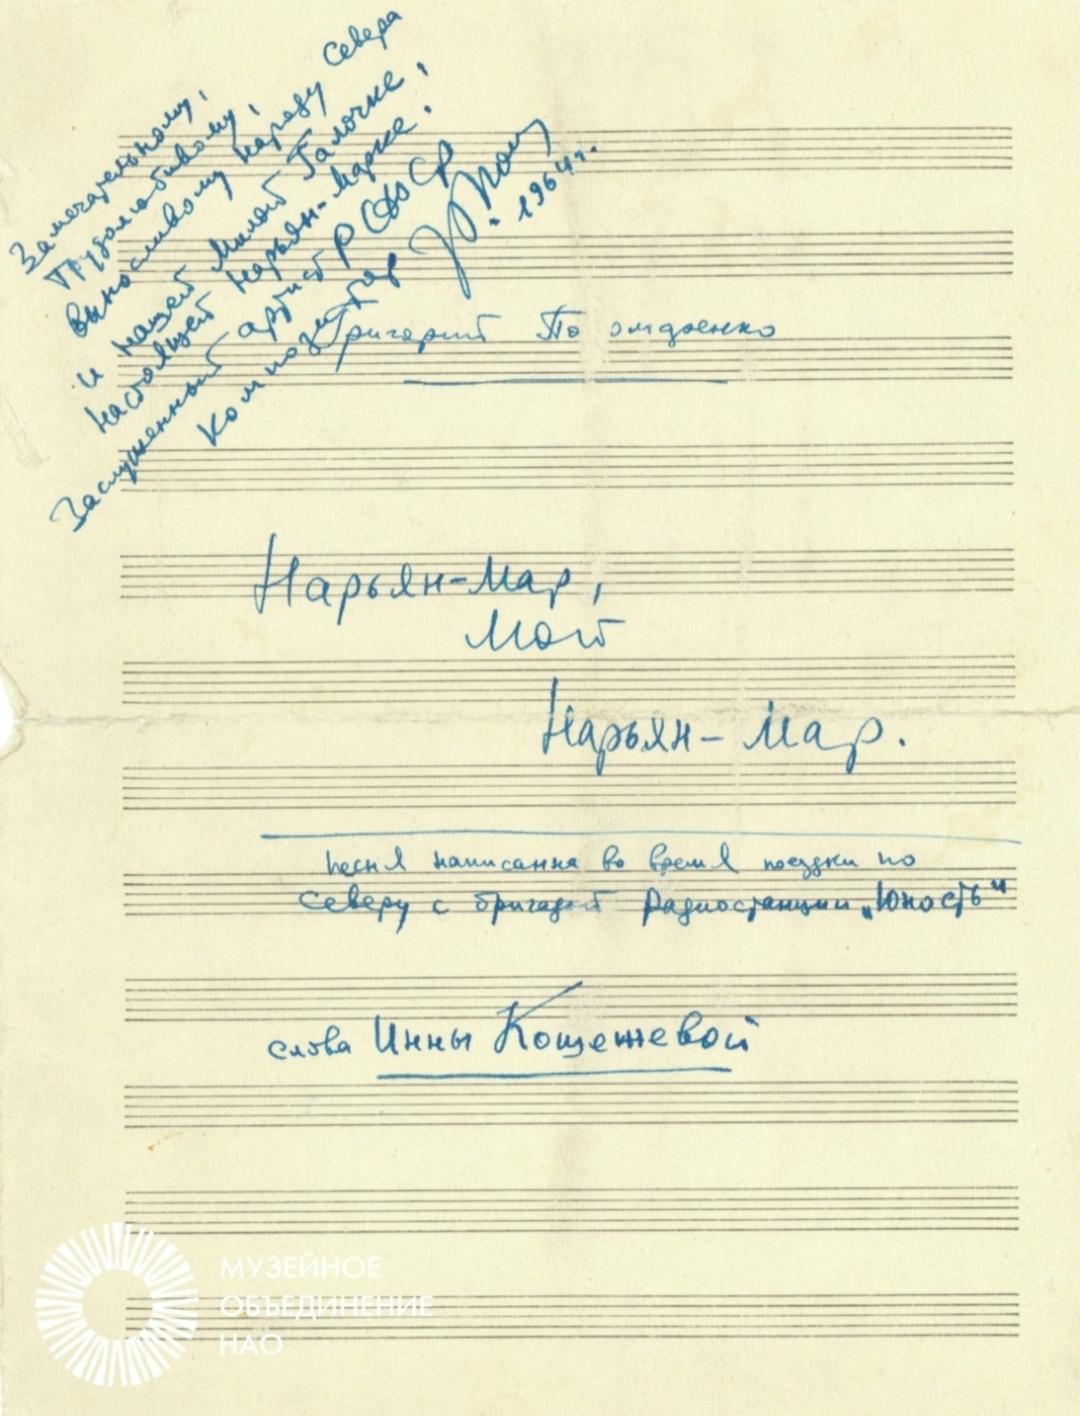 Замечательному,
трудолюбивому,
выносливому народу Севера
и нашей милой Галочке,
настоящей Нарьян-Марке.
Заслуженный артист РСФСР
композитор
1964 г.
Григорий
Нарьян-Мар,
мой
Нарьян-Мар.
песня написанна во время поездки по
северу с бригадой Радиостанции „Юность"
слова Инны Кошежевой
МУЗЕЙНОЕ
ОБЪЕДИНЕНИЕ
НАО